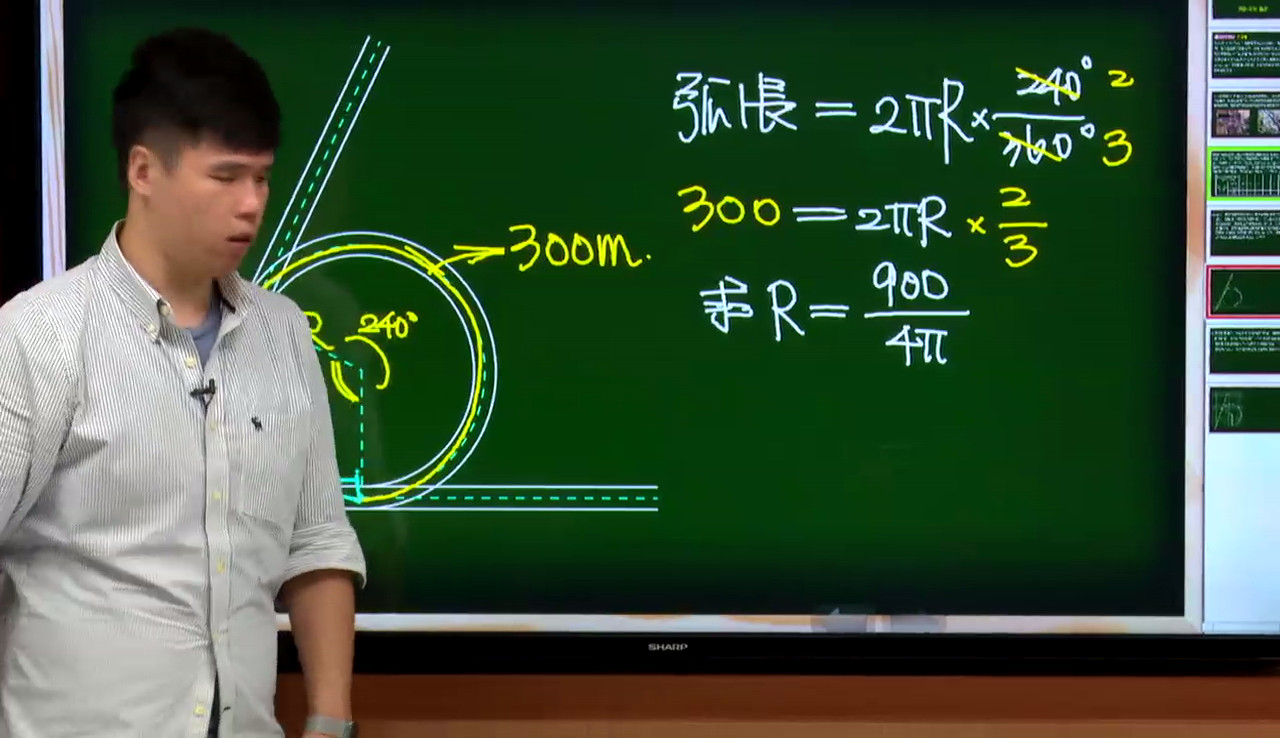 弧長 = 2πR × 240°/360° 2/3
300 = 2πR × 2/3
求 R = 900/4π
300m.
R 240°
SHARP